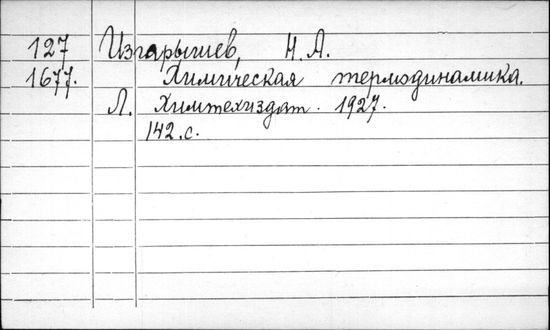 127 Изгарышев, Н. А.
1677. Химическая термодинамика.
Л. Химтехиздат. 1927.
142.с.